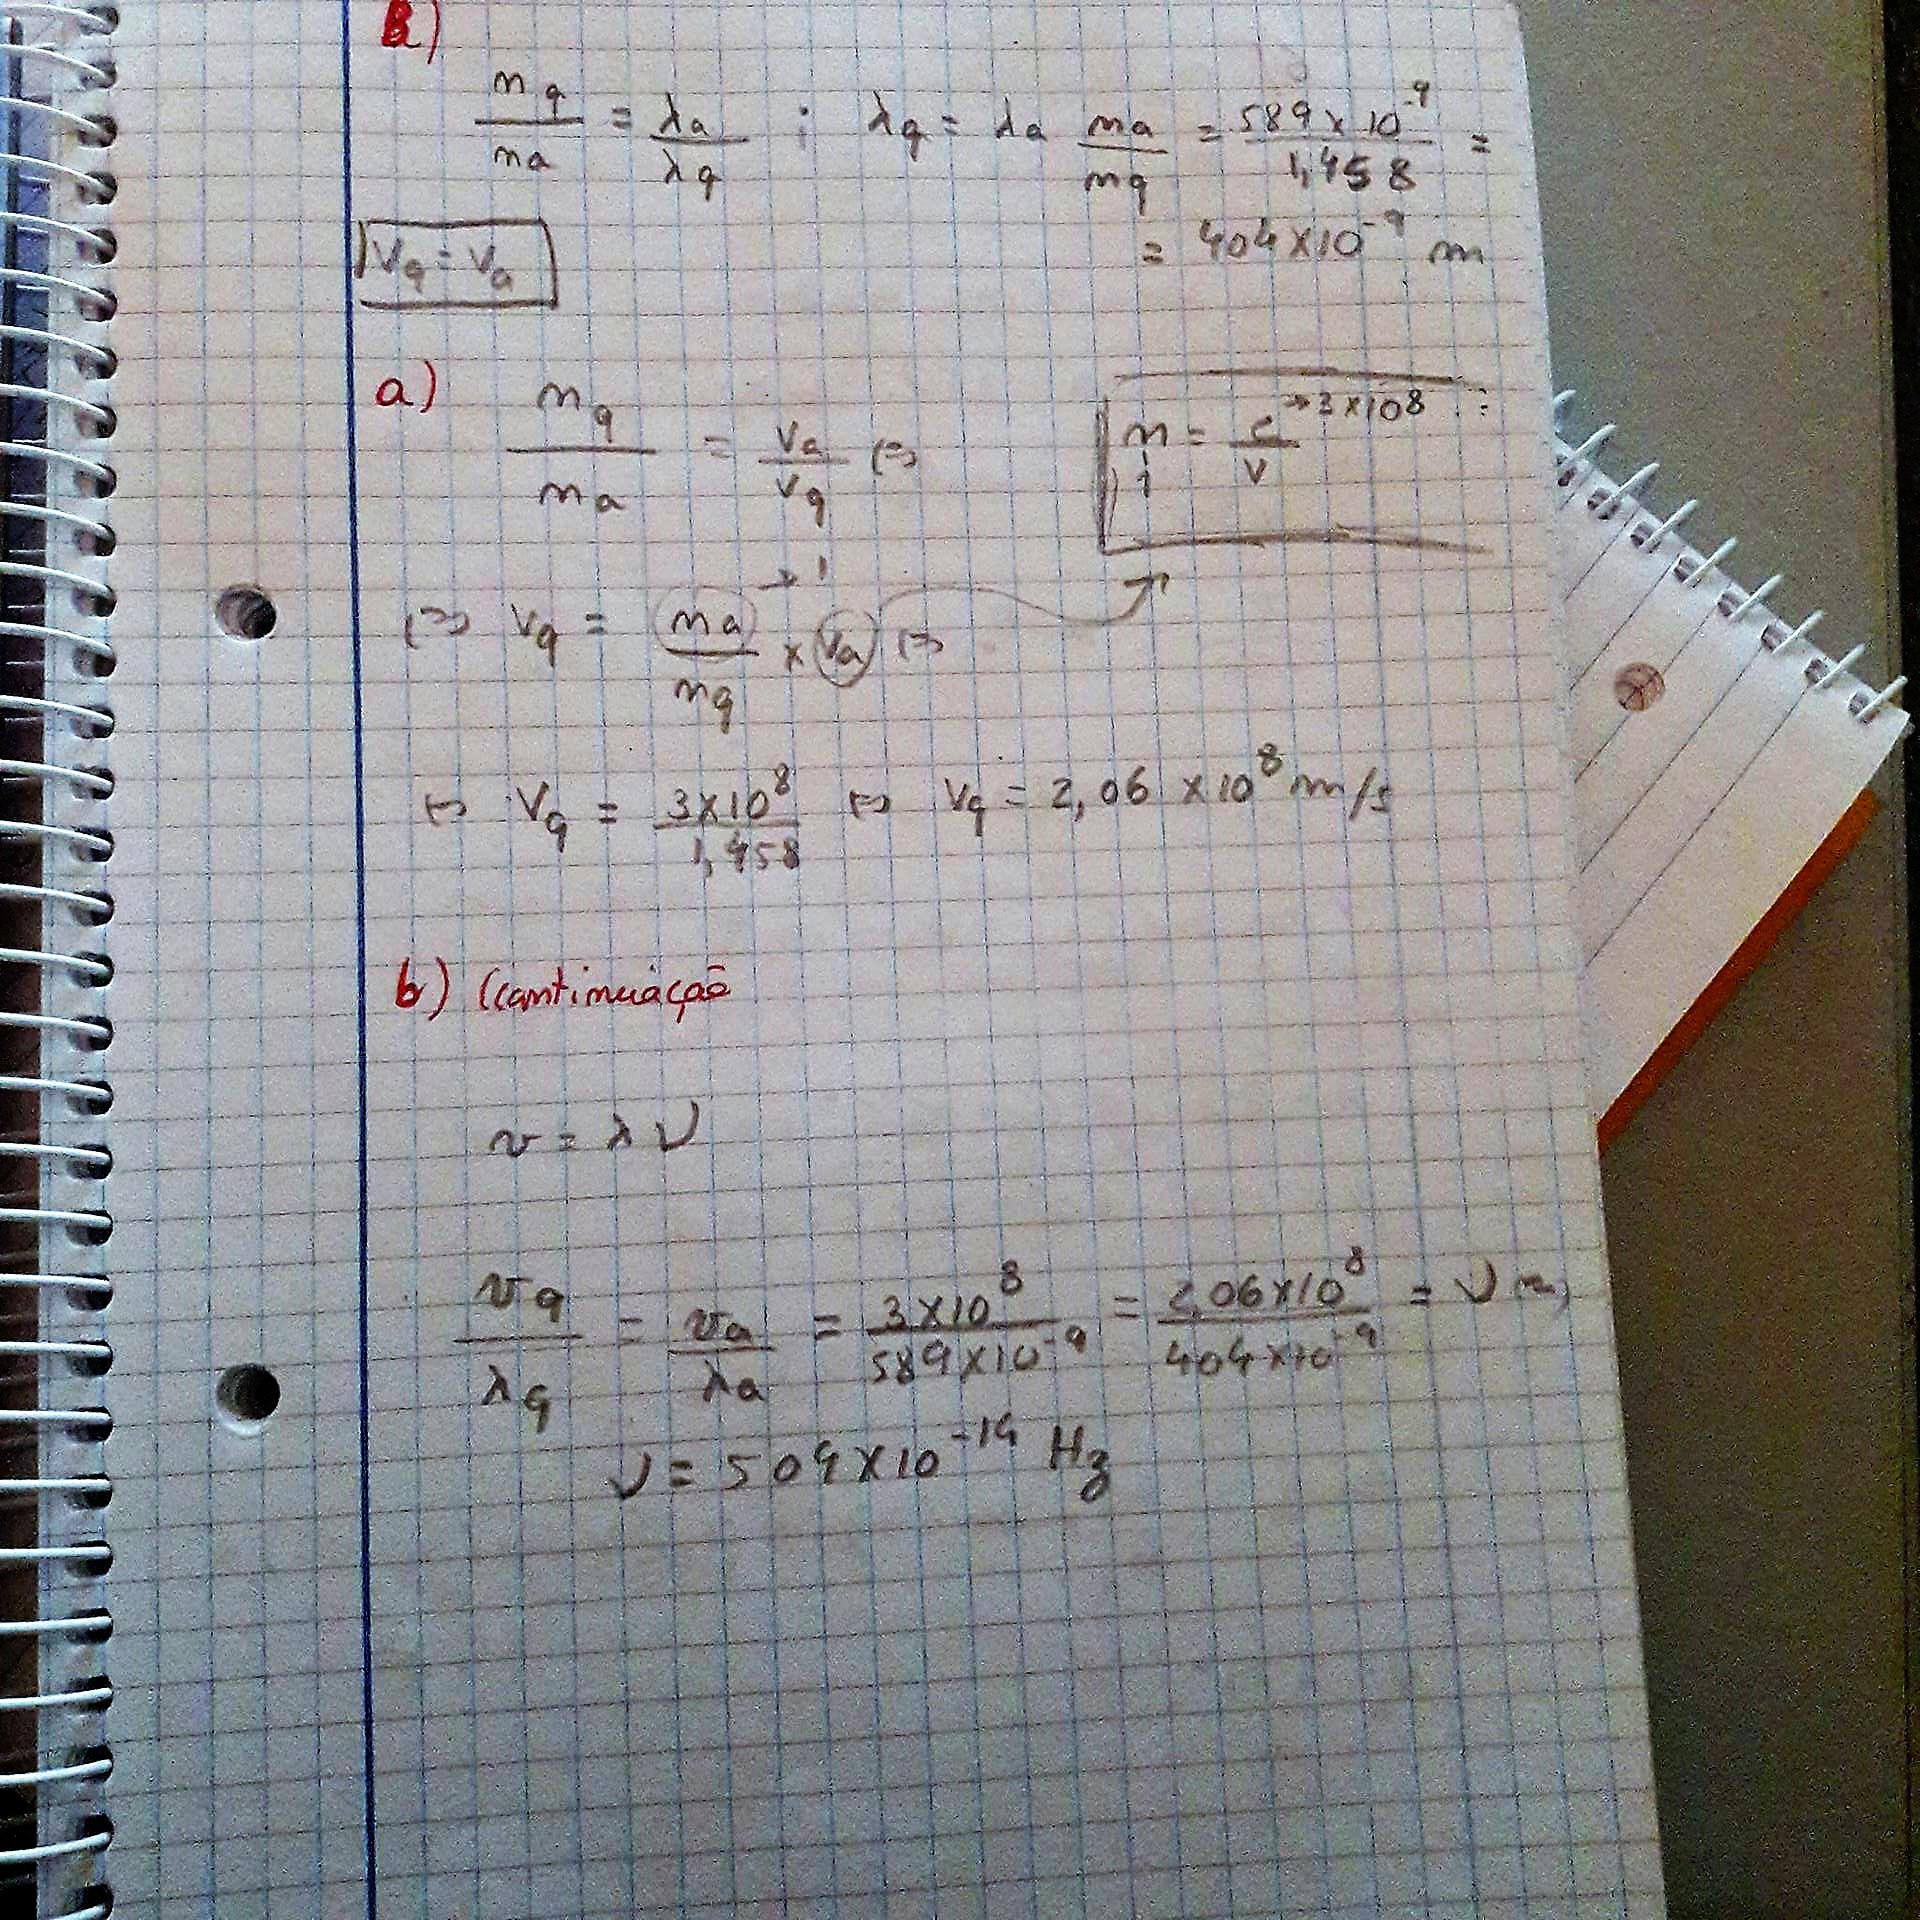 B)
n_q / n_a = λa / λq ; λq = λa na / nq = 589 x 10^-9 / 1,458 =
= 404 x 10^-9 m
Vq = Va
a) n_q / n_a = Va / Vq (=>
n = c / v → 3 x 10^8
(=> Vq = na / nq x Va (=> → 1
(=> Vq = 3 x 10^8 / 1,458 (=> Vq = 2,06 x 10^8 m/s
b) (continuação
v = λ ν
vq / λq = va / λa = 3 x 10^8 / 589 x 10^-9 = 2,06 x 10^8 / 404 x 10^-9 = ν
ν = 504 x 10^-14 Hz